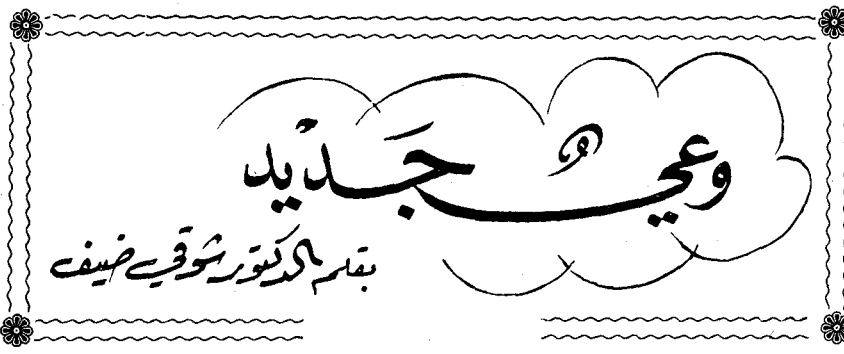 وعيٌ جَديد
بقلم الدكتور شوقي ضيف